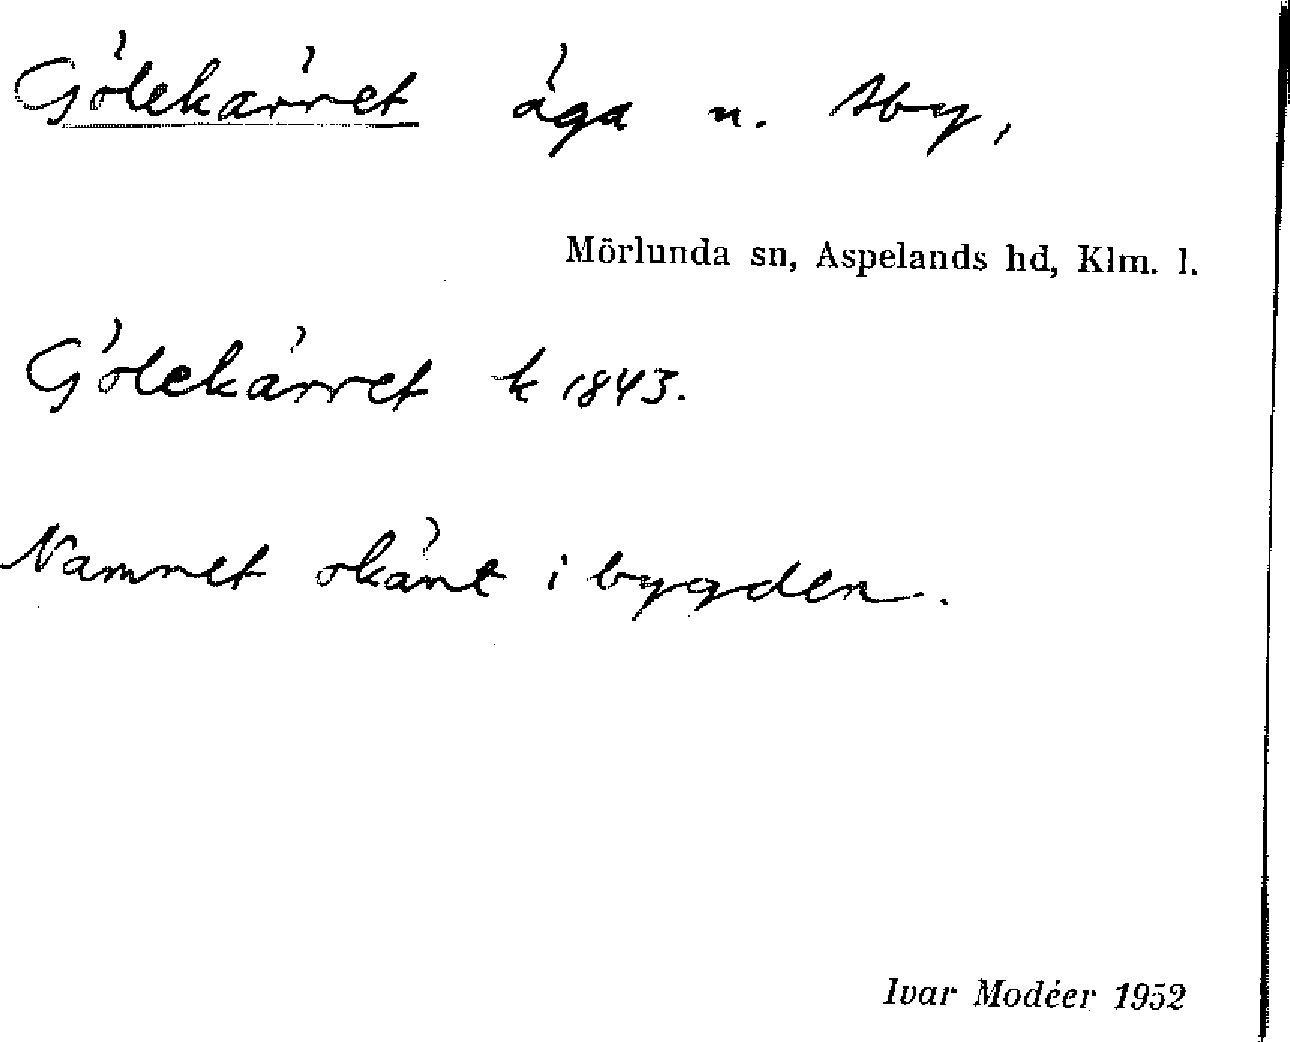 Gölekärret äga n. Sby,
Mörlunda sn, Aspelands hd, Klm. l.
Gölekärret k 1843.
Namnet okänt i bygden.
Ivar Modéer 1952